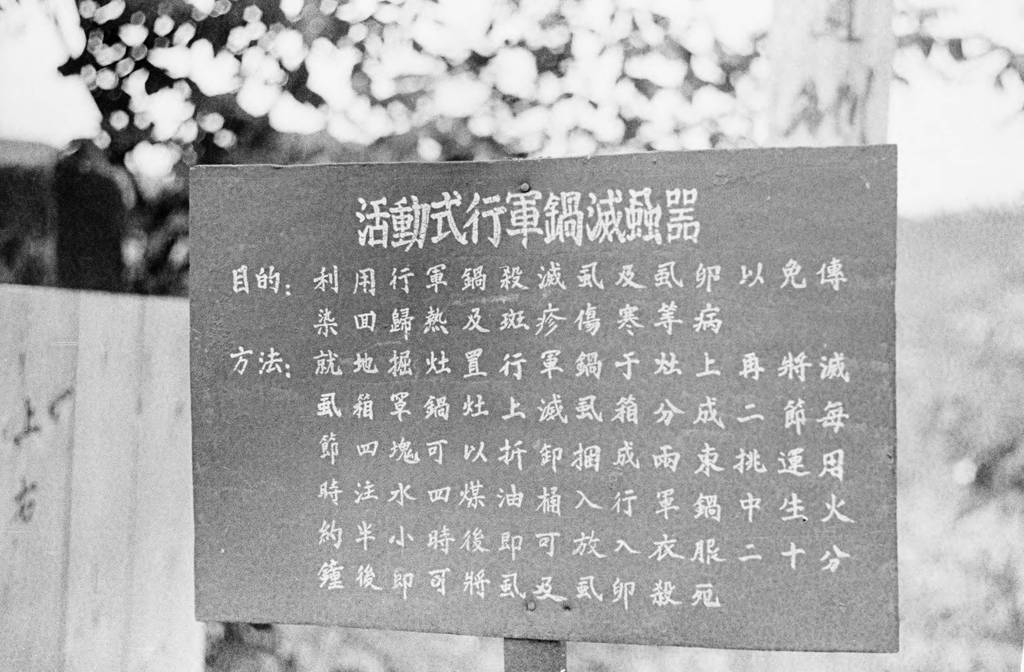 活動式行軍鍋滅蝨器
目的：利用行軍鍋殺滅虱及虱卵以免傳
染回歸熱及斑疹傷寒等病
方法：就地掘灶置行軍鍋于灶上再將滅
虱箱罩鍋灶上滅虱箱分成二節每
節四塊可以折卸捆成兩束挑運用
時注水四煤油桶入行軍鍋中生火
約半小時後即可放入衣服二十分
鐘後即可將虱及虱卵殺死
上
右